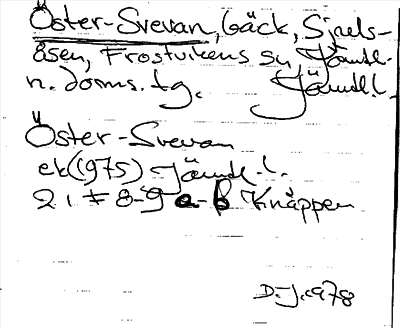 Öster-Svevan, bäck, Sjnels-
åsen, Frostvikens sn, Jämtl.
n. doms. tg. Jämtl.l.
Öster-Svevan
ek (1975) Jämtl.l.
21 # 8-9 a-b Knäppen
D.J. 1978